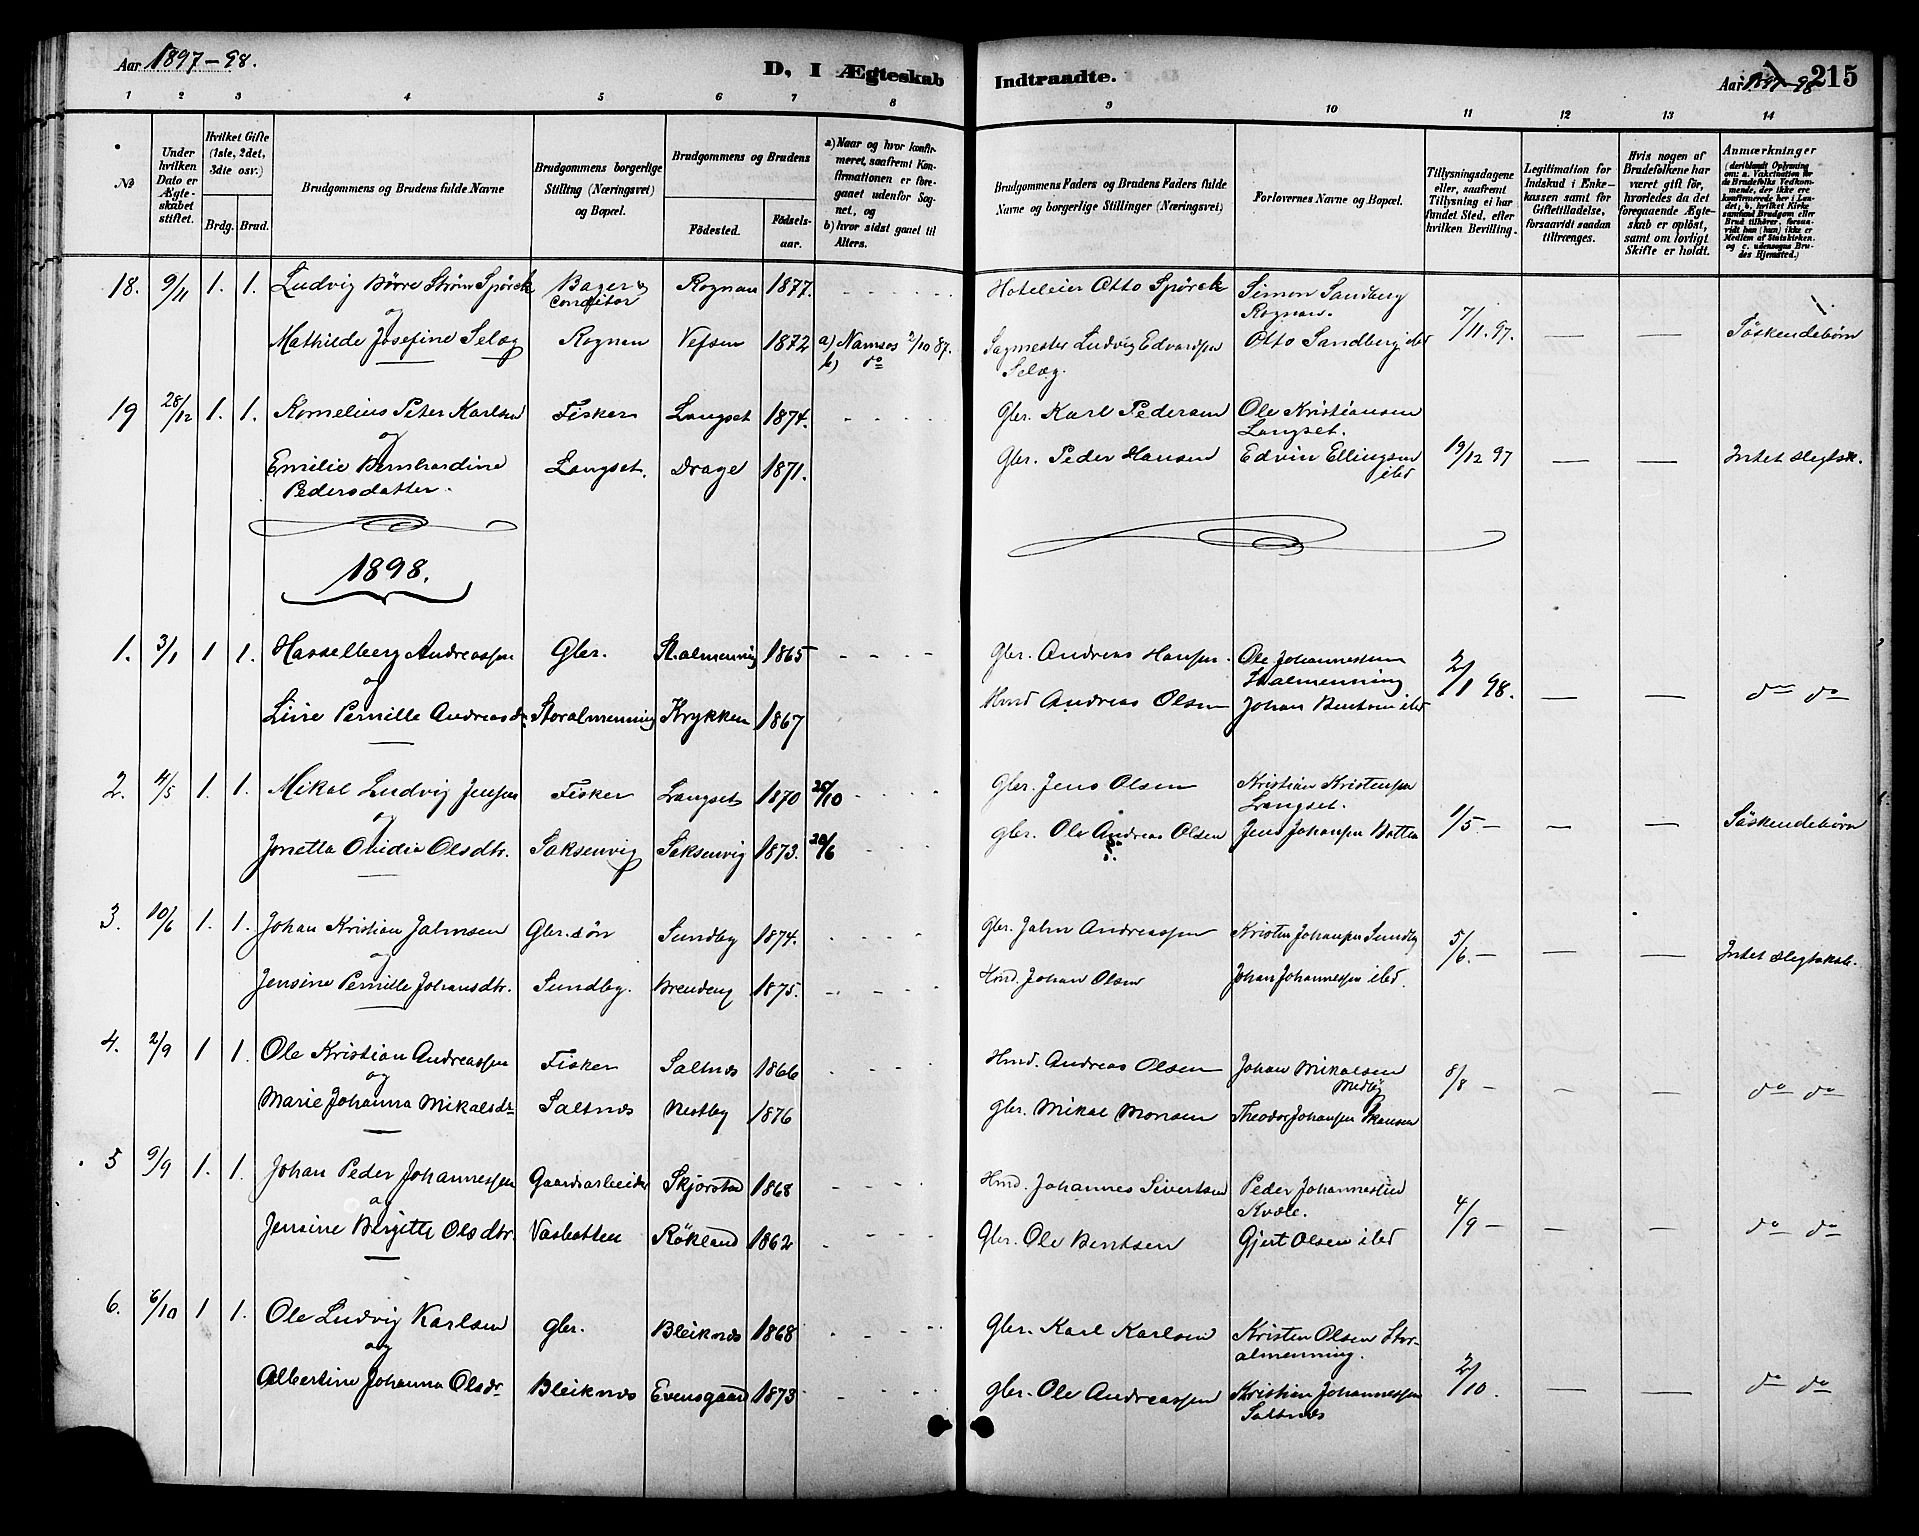 Aar 1897-98.
D, I Ægteskab
Indtraadte.
Aar 1897-98 215
1 2 3 4 5 6 7 8 9 10 11 12 13 14
№
Under hvilken Dato er Ægteskabet stiftet.
Hvilket Gifte (1ste, 2det, 3dte osv.)
Brdg. Brud.
Brudgommens og Brudens fulde Navne
Brudgommens borgerlige Stilling (Næringsvei) og Bopæl.
Brudgommens og Brudens
Fødested.
Fødselsaar.
a) Naar og hvor konfirmeret, saafremt Konfirmationen er foregaaet udenfor Sognet, og
b) hvor sidst gaaet til Alters.
Brudgommens Faders og Brudens Faders fulde Navne og borgerlige Stillinger (Næringsvei)
Forlovernes Navne og Bopæl.
Tillysningsdagene eller, saafremt Tillysning ei har fundet Sted, efter hvilken Bevilling.
Legitimation for Indskud i Enkekassen samt for Giftetilladelse, forsaavidt saadan tiltrænges.
Hvis nogen af Brudefolkene har været gift før, hvorledes da det foregaaende Ægteskab er opløst, samt om lovligt Skifte er holdt.
Anmærkninger
18. 9/11 1. 1. Ludvig Börre Ström Spörck Bager & Conditor Rognan 1877. - - - - Hoteleier Otto Spörck Simon Sandberg
Rognan.
og
Mathilde Josefine Selæg Rognan Vefsen 1872 a) Namsos 2/10 87. Sagmester Ludvig Edvardsen Otto Sandberg ibd 7/11. 97. — — Söskendebörn
b) do Selæg.
19 28/12 1. 1. Kornelius Peter Karlsen Fisker Langset 1874. - - - - Gbr. Karl Pedersen Ole Kristiansen
Langset.
og
Emilie Bernhardine Langset. Drage 1871. Gbr. Peder Hansen Edvin Ellingsen 19/12 97 — — Intet slegtsk.
Pedersdatter. ibd
1898.
1. 3/1 1 1. Hasselberg Andreassen Gbr. St.almenning 1865 - - - - Gbr. Andreas Hansen. Ole Johannessen
Stalmenning
og
Line Pernille Andreasdr. Storalmenning Krykken 1867 Hmd Andreas Olsen Johan Bentsen ibd 2/1 98. — — do do
2. 4/5 1. 1. Mikal Ludvig Jensen Fisker Langset 1870 25/10 - - - Gbr. Jens Olsen Kristian Kristensen
Langset.
og
Jonetta Ovidia Olsdtr. Saksenvig Saksenvig 1873. 20/6 - - - gbr. Ole Andreas Olsen Jens Johansen Botten 1/5. — — — Söskendebörn
3. 10/6 1. 1. Johan Kristian Jalmsen Gbr. sön Sundby 1874. - - - - Gbr. Jalm Andreassen Kristen Johansen Sundby
og
Jensine Pernille Johansdtr. Sundby. Brendeng 1875. - - - - Hmd. Johan Olsen Johan Johannessen ibd. 5/6. — — — Intet slegtskab.
4. 2/9 1 1. Ole Kristian Andreassen Fisker Saltnes 1866 - - - - Hmd. Andreas Olsen Johan Mikalsen
Medby
og
Marie Johanna Mikalsdr Saltnes Nestby 1876 gbr. Mikal Monsen Theodor Johansen Skansen 8/8 — — — do do
5 9/9 1. 1. Johan Peder Johannessen Gaardsarbeider Skjörstad 1868 - - - - Hmd. Johannes Sivertsen Peder Johannessen
Kvæle.
og
Jensine Birgitte Olsdtr. Vasbotten Rökland 1862 - - - - Gbr. Ole Bentsen Gjert Olsen ibd 4/9 — — — do do
6. 6/10 1 1. Ole Ludvig Karlsen gbr. Bleiknes 1868 - - - - Gbr. Karl Karlsen Kristen Olsen Storalmenning.
og
Albertine Johanna Olsdr Bleiknes Evensgaard 1873 - - - - gbr. Ole Andreassen Kristian Johannessen 2/10. — — do do
Saltnes